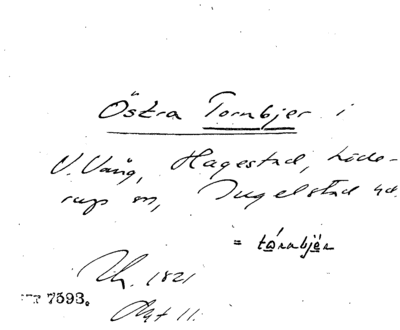 Östra Tornbjer i
V. Vång, Hagestad, Löde-
rup sn, Ingelstad hd.
= tárnbjär
1821
7593.
Akt 11.